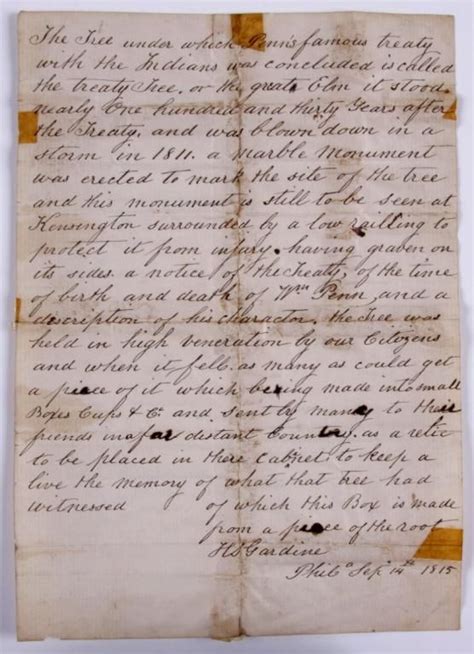 The Tree under which Penn's famous treaty
with the Indians was concluded is called
the treaty Tree. or the grate Elm it stood
nearly One hundred and thirty Years after
the Treaty. and was blown down in a
storm in 1811. a Marble Monument
was erected to mark the site of the tree
and this monument is still to be seen at
Kensington surrounded by a low railling to
protect it from injury. having graven on
its sides a notice of the cheaty, of the time
of birth and death of Wm Penn, and a
discription of his charactor. the Tree was
held in high veneration by our Citizens
and when it fell. as many as could get
a piece of it which being made into small
Boxes Cups & Cr. and sent by many to their
friends in a far distant Country. as a relic
to be placed in there Cabinet to keep a
live the memory of what that tree had
witnessed of which this Box is made
from a piece of the root
HS Gardine
Phila Sepr 14th 1815